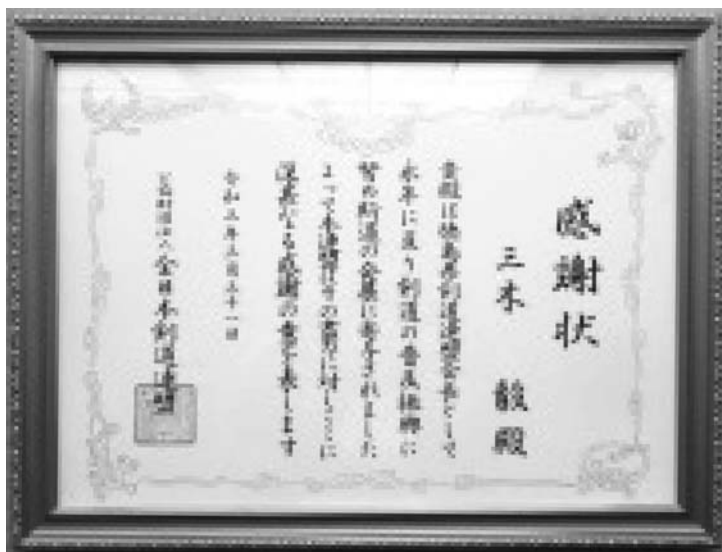 感謝状
三木 毅殿
貴殿は徳島県剣道連盟会長として
永年に亘り剣道の普及振興に
努め斯道の発展に寄与されました
よって本連盟はその功績に対しここに
深甚なる感謝の意を表します
令和三年三月三十一日
全日本剣道連盟